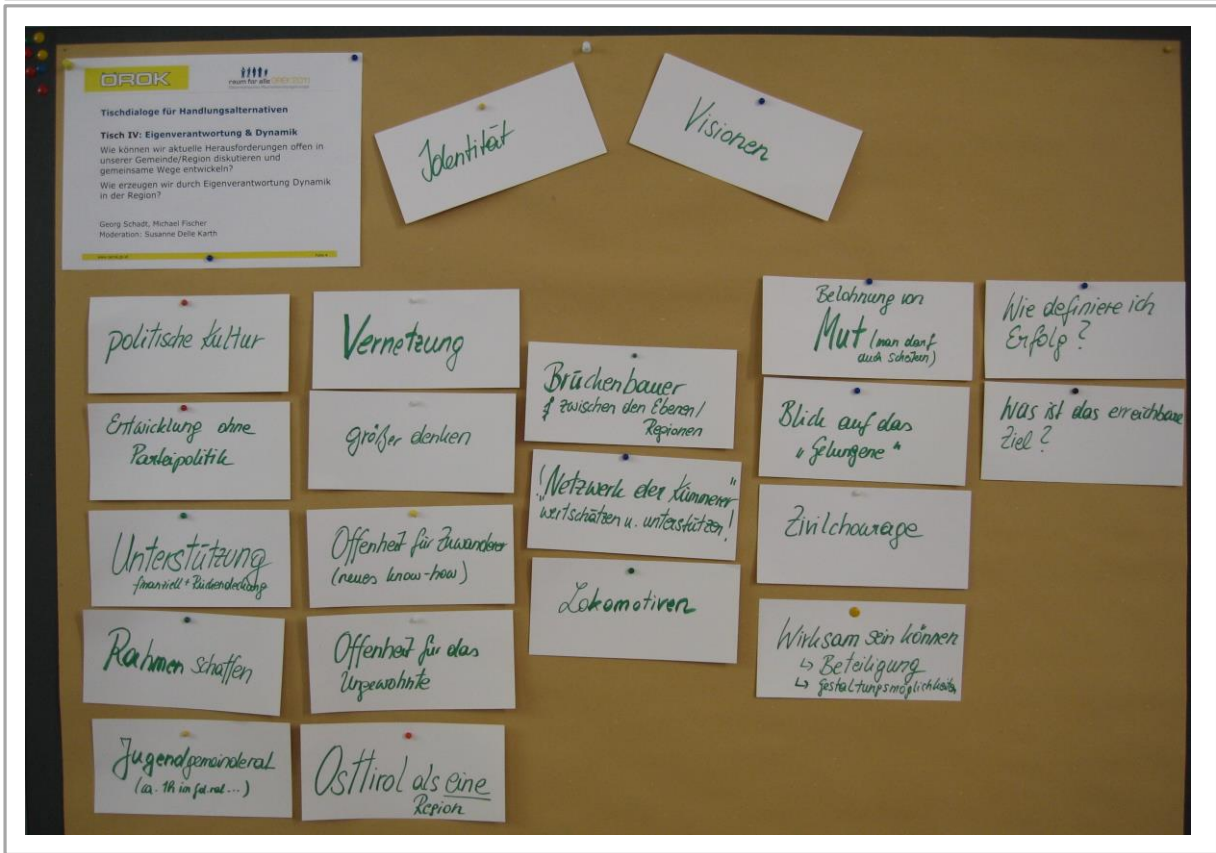 ÖROK
raum für alle ÖREK 2011
Tischdialoge für Handlungsalternativen
Tisch IV: Eigenverantwortung & Dynamik
Wie können wir aktuelle Herausforderungen offen in
unserer Gemeinde/Region diskutieren und
gemeinsame Wege entwickeln?
Wie erzeugen wir durch Eigenverantwortung Dynamik
in der Region?
Georg Schadt, Michael Fischer
Moderation: Susanne Delle Karth
Identität
Visionen
politische Kultur
Entwicklung ohne
Parteipolitik
Unterstützung
finanziell + Rückendeckung
Rahmen schaffen
Jugendgemeinderat
(ca. 1h im
Vernetzung
größer denken
Offenheit für Zuwanderer
(neues know-how)
Offenheit für das
Ungewohnte
Osttirol als eine
Region
Brückenbauer
zwischen den Ebenen/
Regionen
! "Netzwerk der Kümmerer"
wertschätzen u. unterstützen!
Lokomotiven
Belohnung von
Mut (man darf
auch scheitern)
Blick auf das
"Gelungene"
Zivilchourage
Wirksam sein können
↳ Beteiligung
↳ Gestaltungsmöglichkeiten
Wie definiere ich
Erfolg?
Was ist das erreichbare
Ziel?